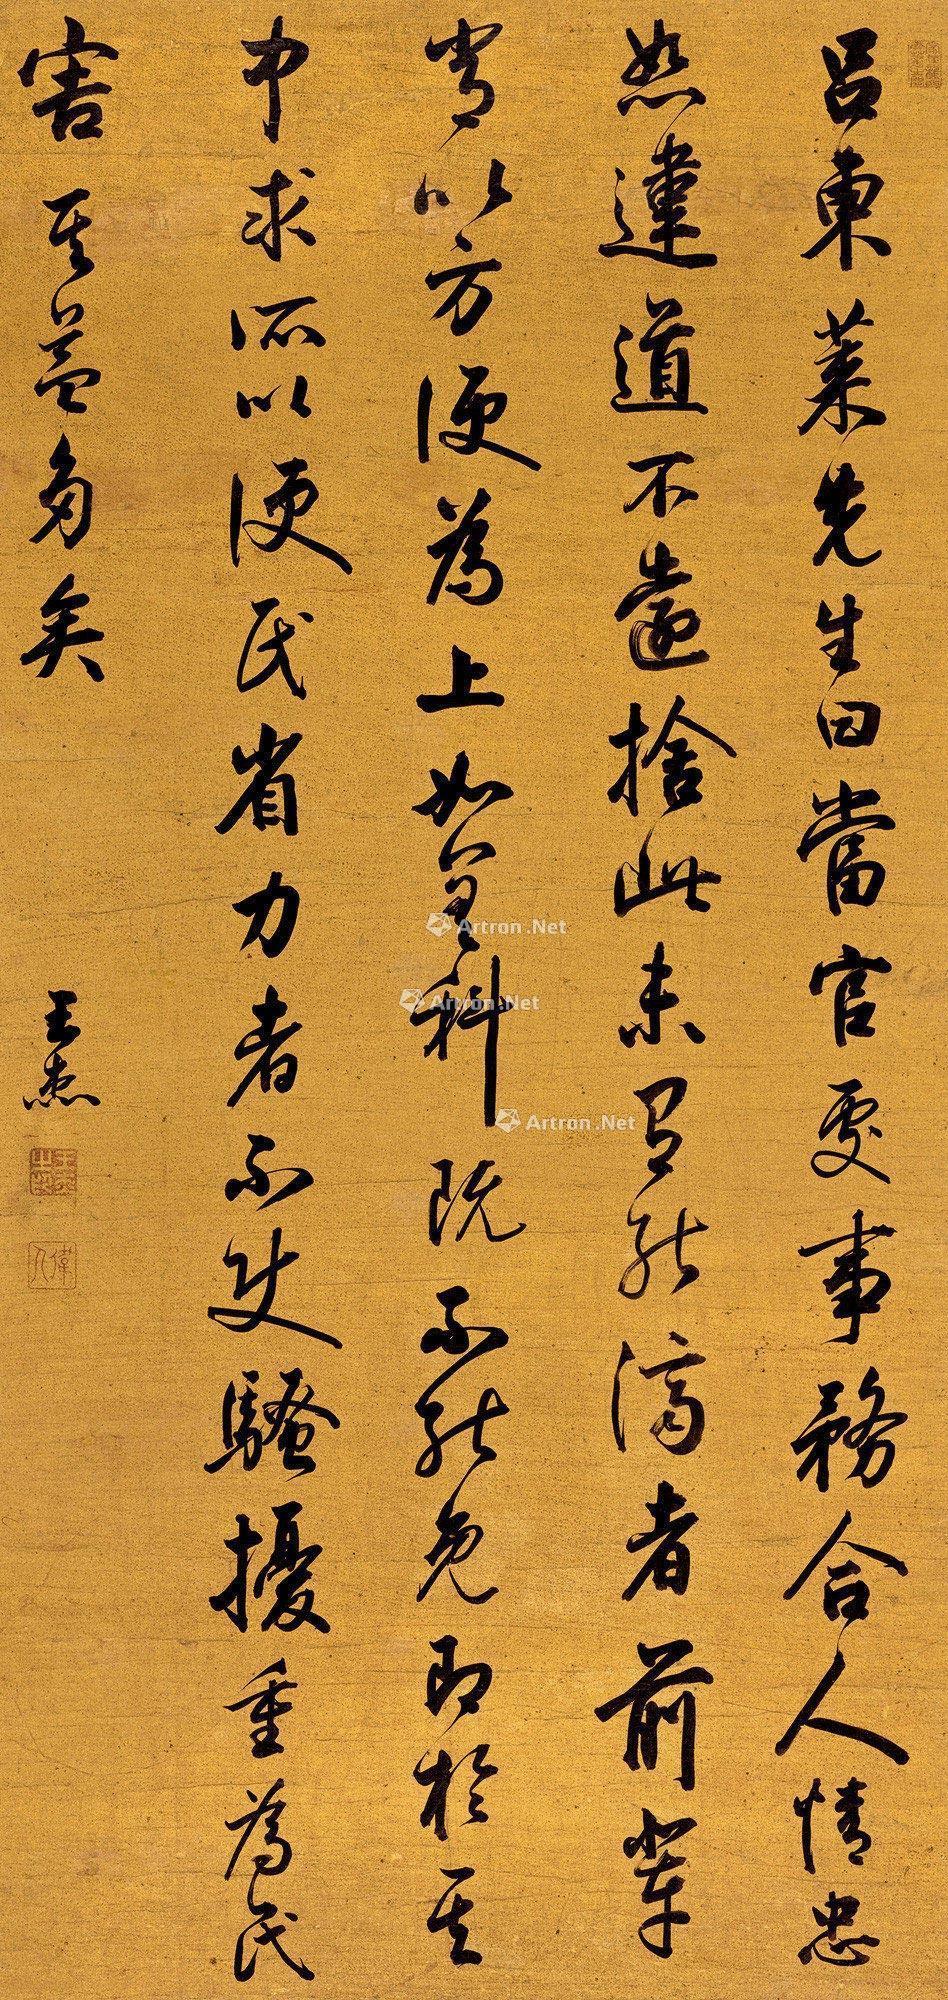 吕東莱先生曰當官處事務合人情忠
恕違道不遠捨此未有能濟者前輩
嘗以方便為上如差科既不能免即於其
中求所以便民省力者不使騷擾重為民
害其益多矣
王杰
王杰
偉人
Artron.Net
Artron.Net
Artron.Net